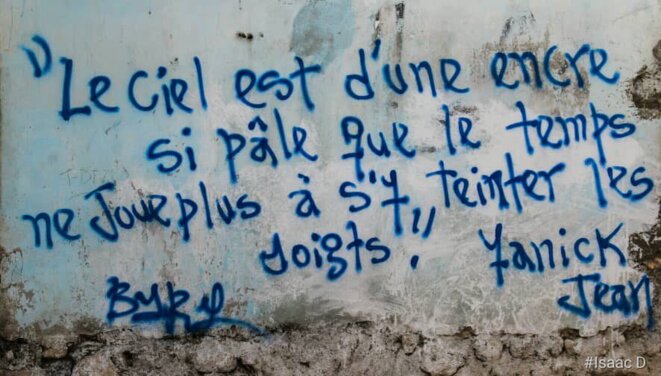 "Le ciel est d'une encre
si pâle que le temps
ne Joue plus à s'y,, teinter les
doigts." Yanick
Jean
#Isaac D